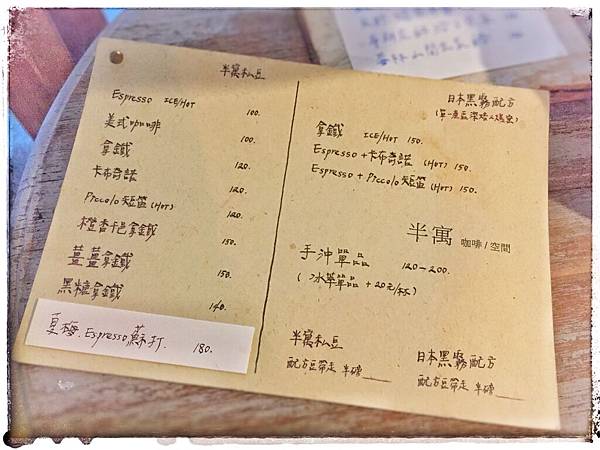 半寓私豆
Espresso ICE/HOT 100.
美式咖啡 100.
拿鐵 120.
卡布奇諾 120.
Piccolo 短笛 (HOT) 120.
橙香干邑拿鐵 150.
薑薑拿鐵 150.
黑糖拿鐵 140.
夏梅.Espresso.蘇打. 180.
日本黑霧配方
拿鐵 ICE/HOT 150.
Espresso + 卡布奇諾 (HOT) 150.
Espresso + Piccolo 短笛 (HOT) 150.
半寓 咖啡/空間
手沖單品 120-200.
冰單品 +20元/杯)
半寓私豆
配方豆帶走 半磅
日本黑霧配方
配方豆帶走 半磅